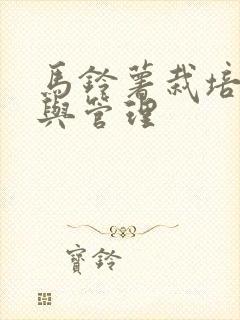 馬鈴薯栽培
與管理
寶鈴